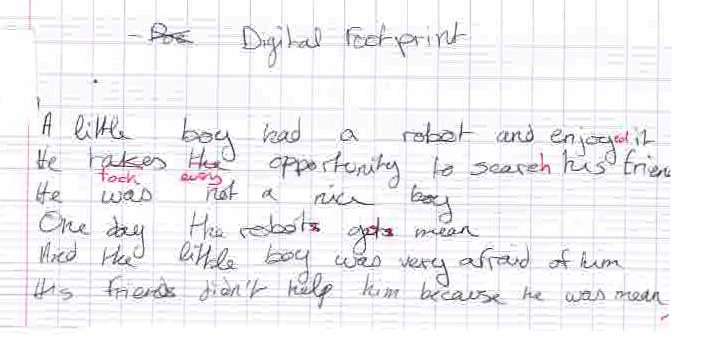 - Digital Footprint
A little boy had a robot and enjoyed it
He takes the opportunity to search his friend
took every
He was not a nice boy
One day the robots gets mean
And the little boy was very afraid of him
His friends didn't help him because he was mean